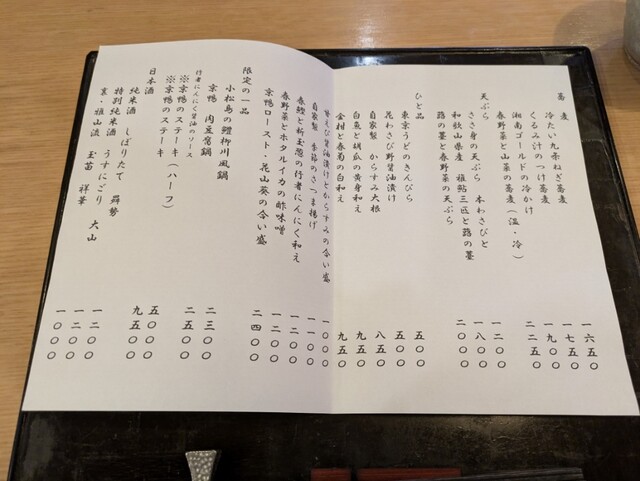 蕎麦
冷たい九条ねぎ蕎麦 一六五〇
くるみ汁のつけ蕎麦 一七五〇
湘南ゴールドの冷かけ 一九〇〇
春野菜と山菜の蕎麦(温・冷) 二二五〇
天ぷら
ささ身の天ぷら 本わさびと 一二〇〇
和歌山県産 稚鮎三匹と蕗の薹 一八〇〇
蕗の薹と春野菜の天ぷら 二〇〇〇
ひと品
東京うどのきんぴら 五〇〇
花わさび野醤油漬け 五〇〇
自家製 からすみ大根 八五〇
白魚と胡瓜の黄身和え 九五〇
金柑と春菊の白和え 九五〇
甘えび醤油漬けとからすみの合い盛 一〇〇〇
自家製 季節のさつま揚げ 一一〇〇
春鰹と新玉葱の行者にんにく和え 一二〇〇
春野菜とホタルイカの酢味噌 一二〇〇
京鴨ロースト・花山葵の合い盛 二四〇〇
限定の一品
小松島の鱧柳川風鍋 二三〇〇
京鴨 肉豆腐鍋 二五〇〇
行者にんにく醤油のソース
※京鴨のステーキ(ハーフ)
※京鴨のステーキ 五〇〇〇
日本酒
純米酒 しぼりたて 羅勢 九五〇
特別純米酒 うすにごり 大山 一二〇〇
裏・雅山流 玉苗 祥華 一〇〇〇